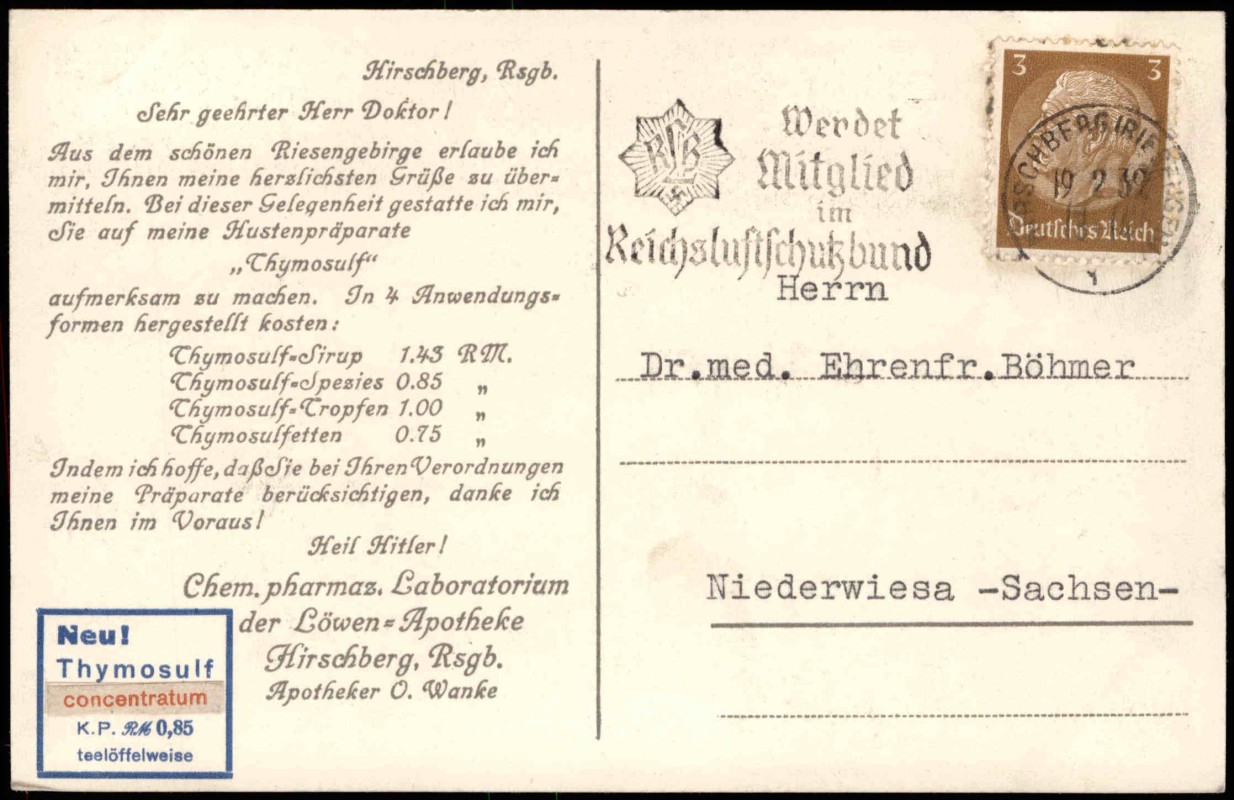 Hirschberg, Rsgb.
Sehr geehrter Herr Doktor!
Aus dem schönen Riesengebirge erlaube ich
mir, Ihnen meine herzlichsten Grüße zu über=
mitteln. Bei dieser Gelegenheit gestatte ich mir,
Sie auf meine Hustenpräparate
„Thymosulf“
aufmerksam zu machen. In 4 Anwendungs=
formen hergestellt kosten:
Thymosulf=Sirup 1.43 RM.
Thymosulf=Spezies 0.85 „
Thymosulf=Tropfen 1.00 „
Thymosulfetten 0.75 „
Indem ich hoffe, daß Sie bei Ihren Verordnungen
meine Präparate berücksichtigen, danke ich
Ihnen im Voraus!
Heil Hitler!
Chem. pharmaz. Laboratorium
der Löwen=Apotheke
Hirschberg, Rsgb.
Apotheker O. Wanke
Neu!
Thymosulf
concentratum
K.P. RM 0,85
teelöffelweise
RLB
Werdet
Mitglied
im
Reichsluftschutzbund
3 3
Deutsches Reich
19 2
Herrn
Dr.med. Ehrenfr.Böhmer
Niederwiesa -Sachsen-